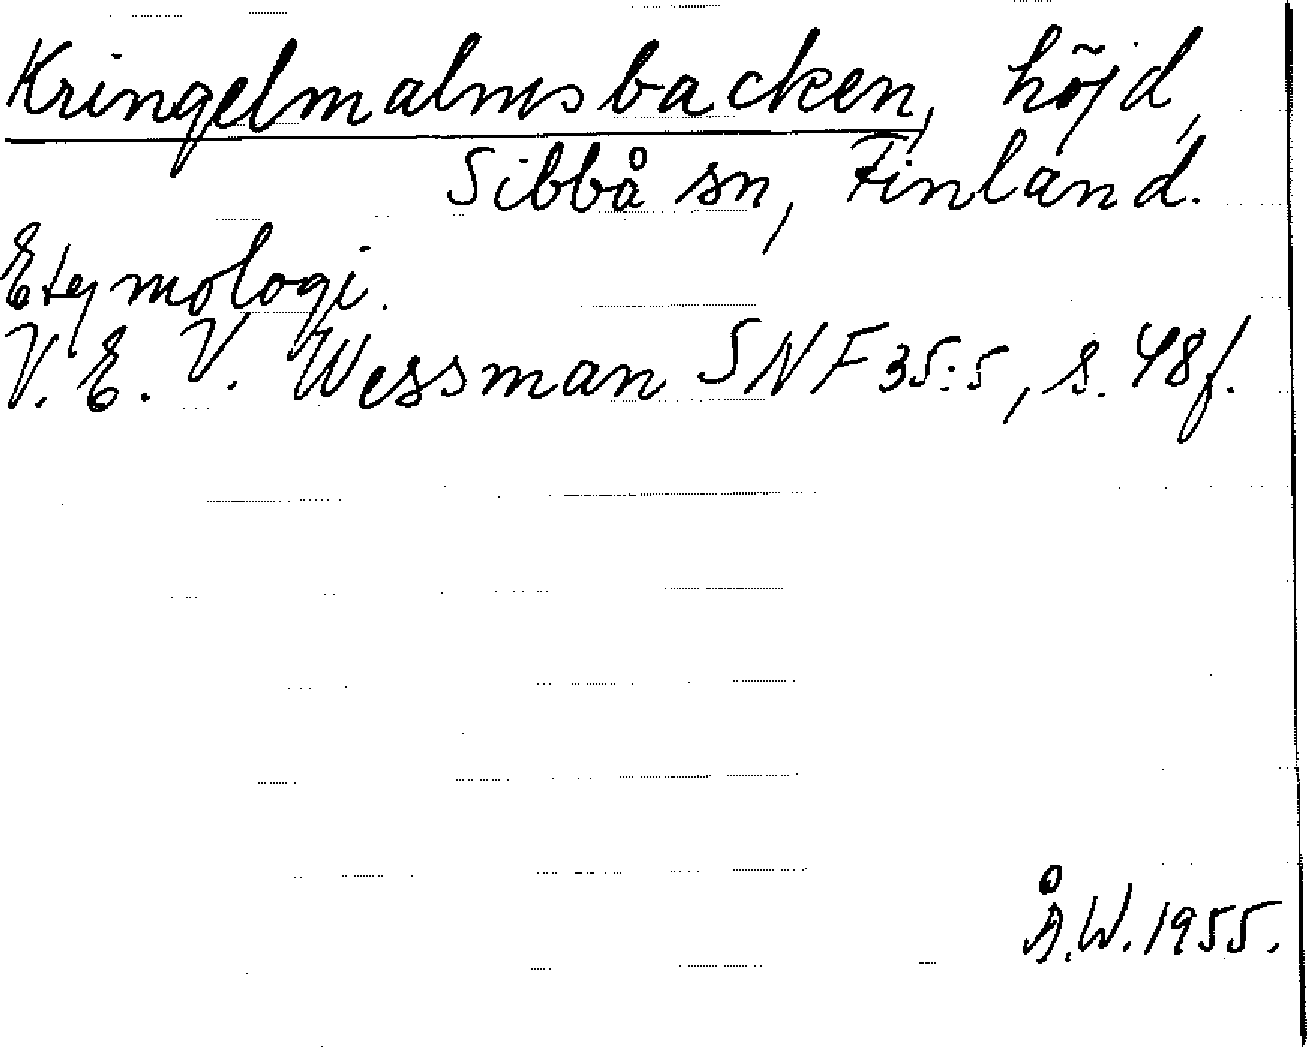 Kringelmalmsbacken, höjd,
Sibbå sn, Finland.
Etymologi.
V. E. V. Wessman SNF 35:5, s. 48f.
Å.W. 1955.